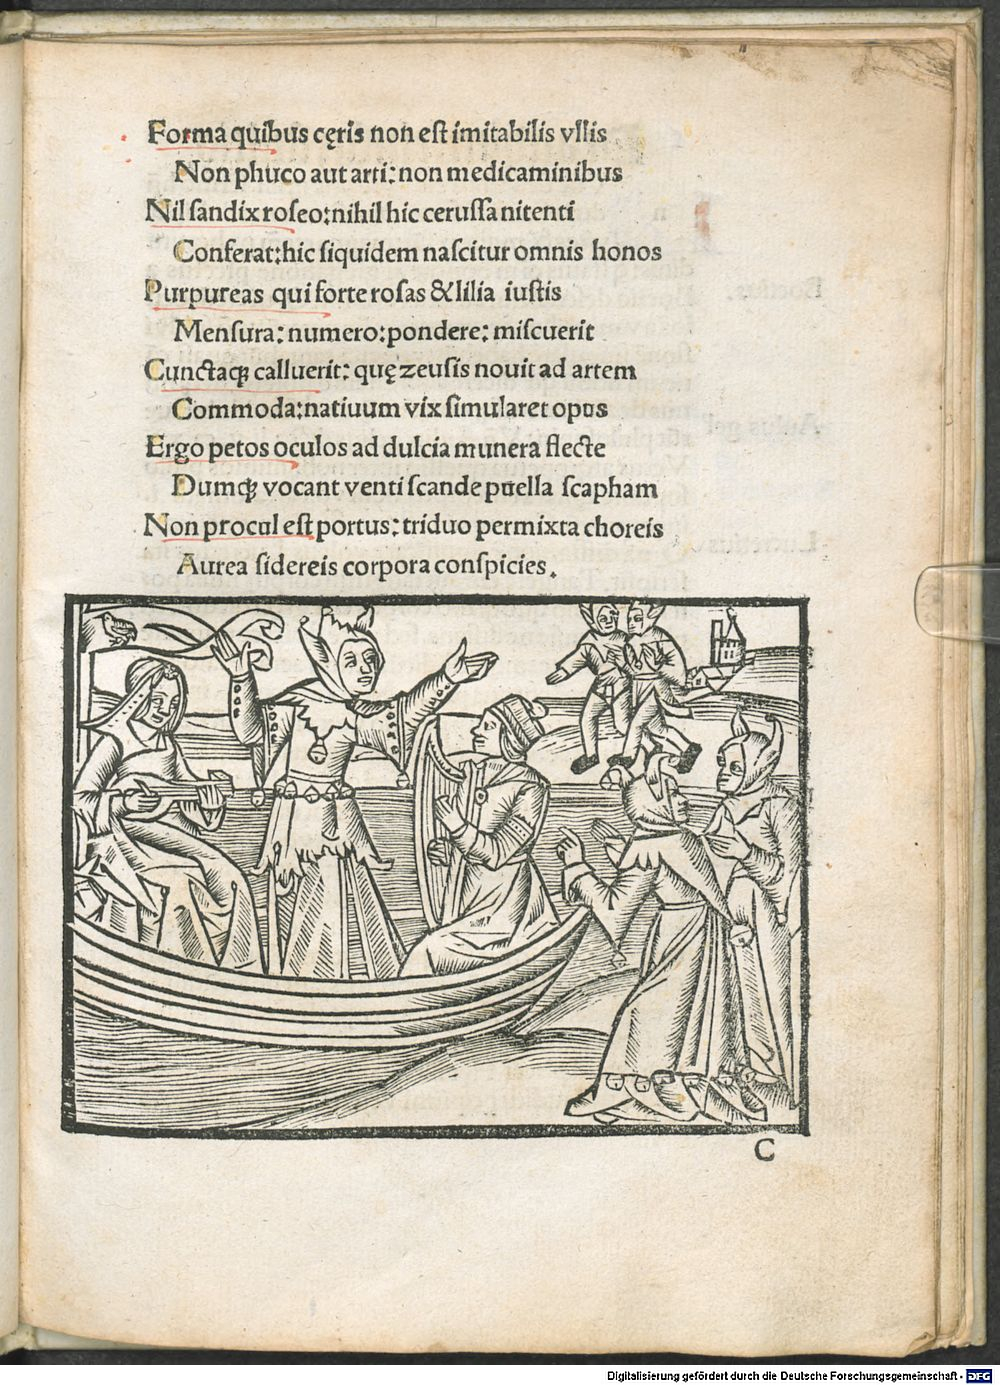 Forma quibus cęris non est imitabilis vllis
Non phuco aut arti: non medicaminibus
Nil sandix roseo: nihil hic cerussa nitenti
Conferat: hic siquidem nascitur omnis honos
Purpureas qui forte rosas & lilia iustis
Mensura: numero: pondere: miscuerit
Cunctaqꝫ calluerit: quę zeusis nouit ad artem
Commoda: natiuum vix simularet opus
Ergo petos oculos ad dulcia munera flecte
Dumqꝫ vocant venti scande puella scapham
Non procul est portus: triduo permixta choreis
Aurea sidereis corpora conspicies.
C
Digitalisierung gefördert durch die Deutsche Forschungsgemeinschaft - DFG